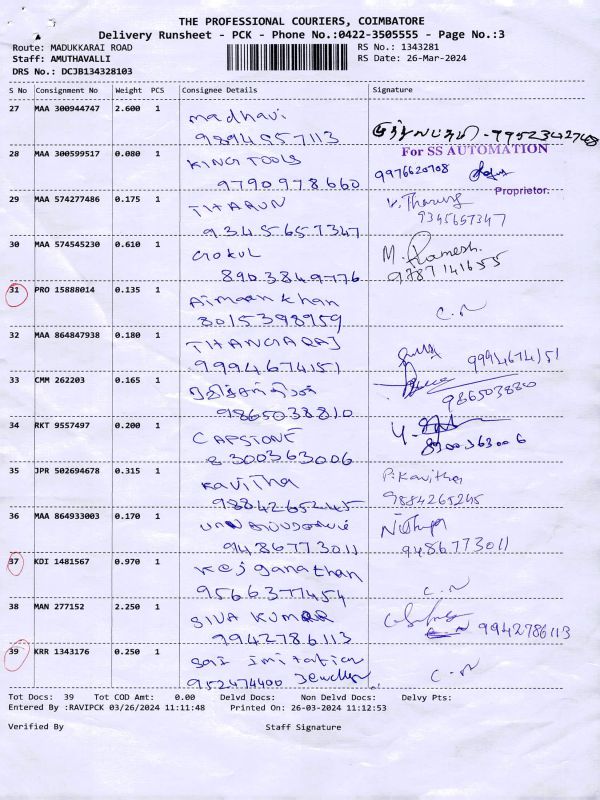 THE PROFESSIONAL COURIERS, COIMBATORE
Delivery Runsheet - PCK - Phone No.:0422-3505555 - Page No.:3
Route: MADUKKARAI ROAD
RS No.: 1343281
Staff: AMUTHAVALLI
RS Date: 26-Mar-2024
DRS No.: DCJB134328103
S No Consignment No Weight PCS Consignee Details Signature
27 MAA 300944747 2.600 1 madhavi
9894557113 7752342748
28 MAA 300599517 0.080 1 KING TOOLS For SS AUTOMATION
9790978660 9976620908
Proprietor.
29 MAA 574277486 0.175 1 THARUN
9345657347 9345657347
30 MAA 574545230 0.610 1 Gokul M. Ramesh.
8903849776 9787141655
31 PRO 15888014 0.135 1 Aimaan khan
8015398959 C.N
32 MAA 864847938 0.180 1 THANGARAJ
9994674151 9994674151
33 CMM 262203 0.165 1
9865038810 9865038810
34 RKT 9557497 0.200 1 CAPSTONE
8300363006 8300363006
35 JPR 502694678 0.315 1 Kavitha P. Kavitha
9884265245 9884265245
36 MAA 864933003 0.170 1
9486773011 9486773011
37 KDI 1481567 0.970 1 Kejganathan
9566377454 C.N
38 MAN 277152 2.250 1 SIVA KUMAR
9942786113 9942786113
39 KRR 1343176 0.250 1 Sai imitation
952474400 Jewellery C.N
Tot Docs: 39 Tot COD Amt: 0.00 Delvd Docs: Non Delvd Docs: Delvy Pts:
Entered By :RAVIPCK 03/26/2024 11:11:48 Printed On: 26-03-2024 11:12:53
Verified By Staff Signature